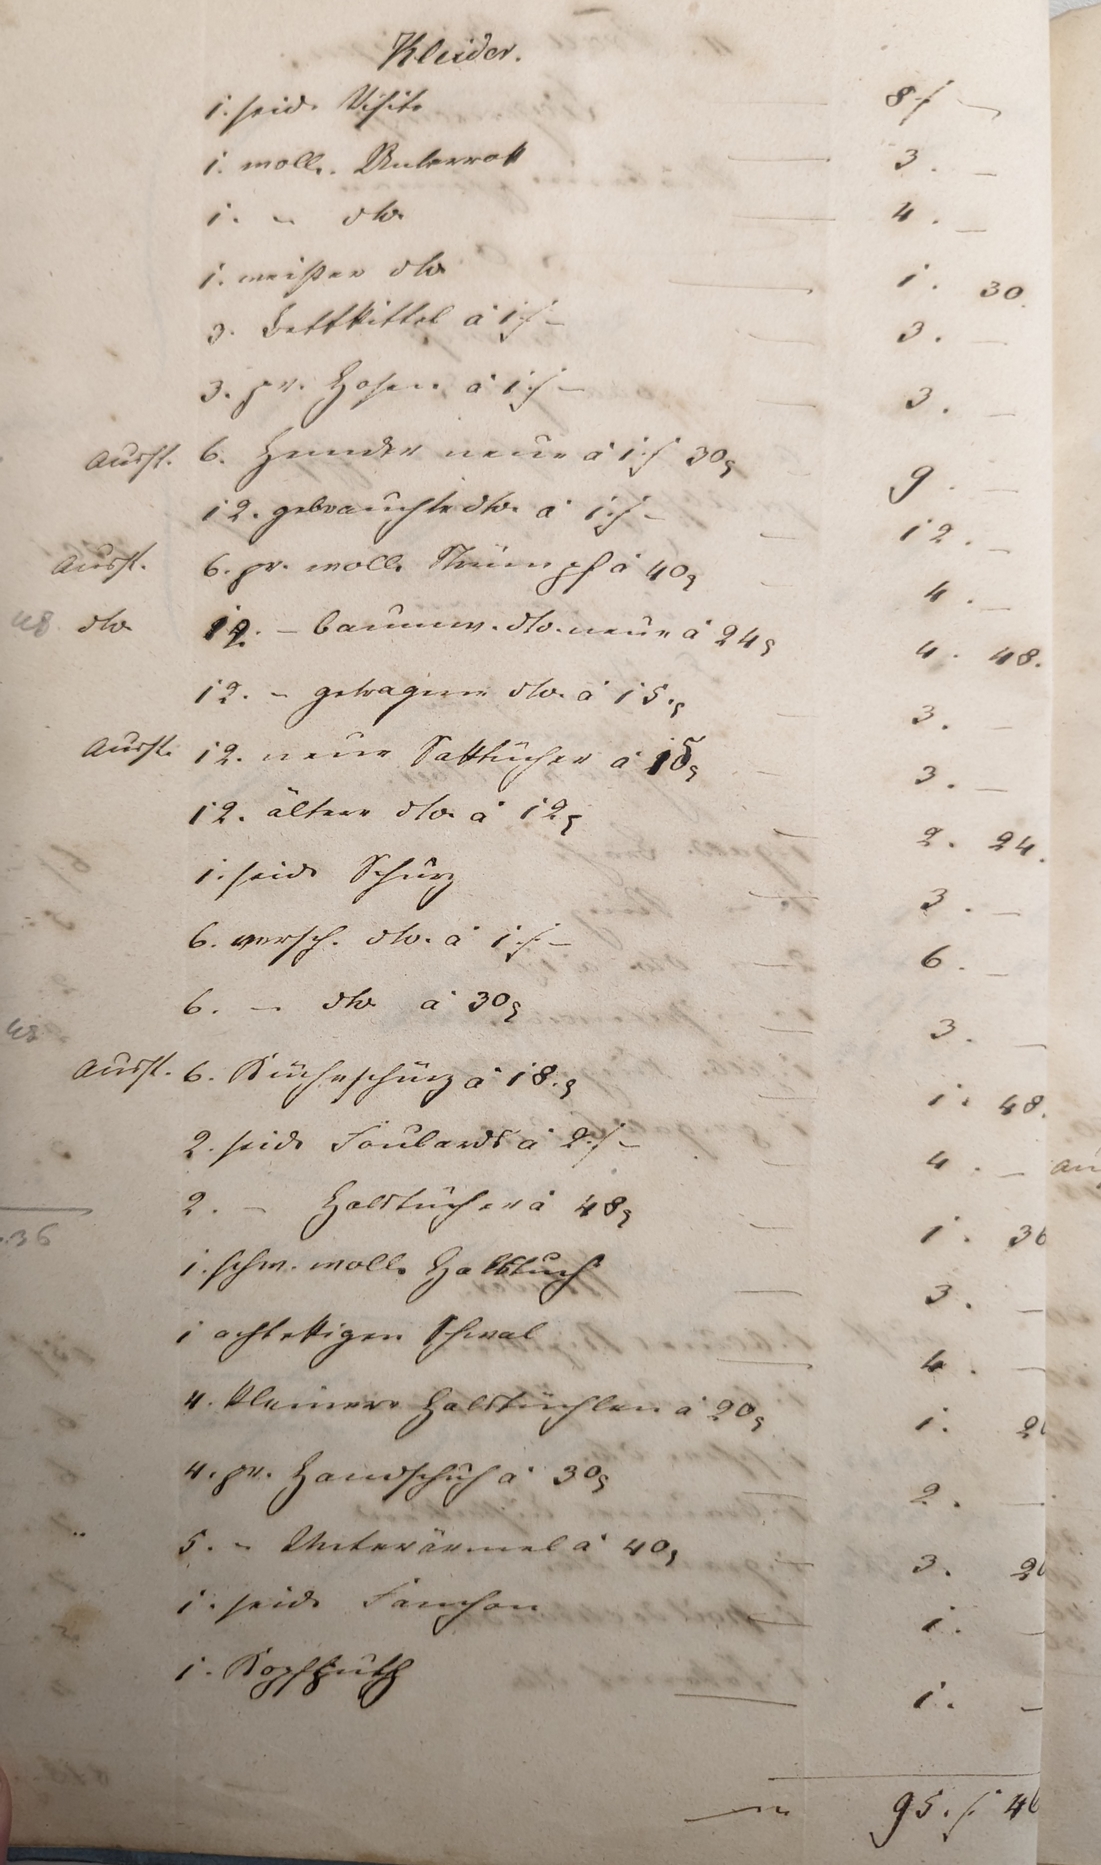 Kleider.
1. seid. Visite — 8 f —
1. woll. Unterrock — 3. —
1. " dto — 4. —
1. weißer dto — 1. 30.
3. Bettkittel à 1 f — — 3. —
3. pr. Hosen à 1 f — — 3. —
Ausst. 6. Hemder neue à 1 f 30 9. —
12. gebrauchte dto. à 1 f — — 12. —
Ausst. 6. pr. woll. Strümpf à 40 — 4. —
48 dto 12. — baumw. dto. neue à 24 4. 48.
12. " getragene dto. à 15. — 3. —
Ausst. 12. neue Sacktücher à 15 — 3. —
12. ältere dto. à 12 — 2. 24.
1. seid. Schürz — 3. —
6. versch. dto. à 1 f — — 6. —
6. — dto à 30 — 3. —
48
Ausst. 6. Kücheschürz à 18. — 1. 48.
2. seid. Foulards à 2 f — — 4. —
2. — Halstücher à 48 — 1. 36
.36
1. schw. woll. Halstuch — 3. —
1 achteckigen Schwal — 4. —
4. kleinere Halstüchlen à 20 1. 20
4. pr. Handschuh à 30 — 2. —
5. " Unterärmel à 40 — 3. 20
1. seid. Fanchon — 1. —
1. Kopfputz — 1. —
95. f. 46